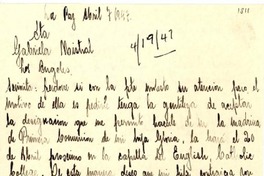 La Paz Abril 7 1947.
Sta
Gabriela Mistral
4/19/47
1811
Los Angeles.
Señorita: perdone si con la pte molesto su atención pero el
motivo de ella es pedirle tenga la gentileza de aceptar
la designación que me permito hacerle en la madrina
de Primera Comunión de mi hija Gloria, la hará el 20
de Abril próximo en la capilla del English Catholic
College. De esta manera deseo que mi hija